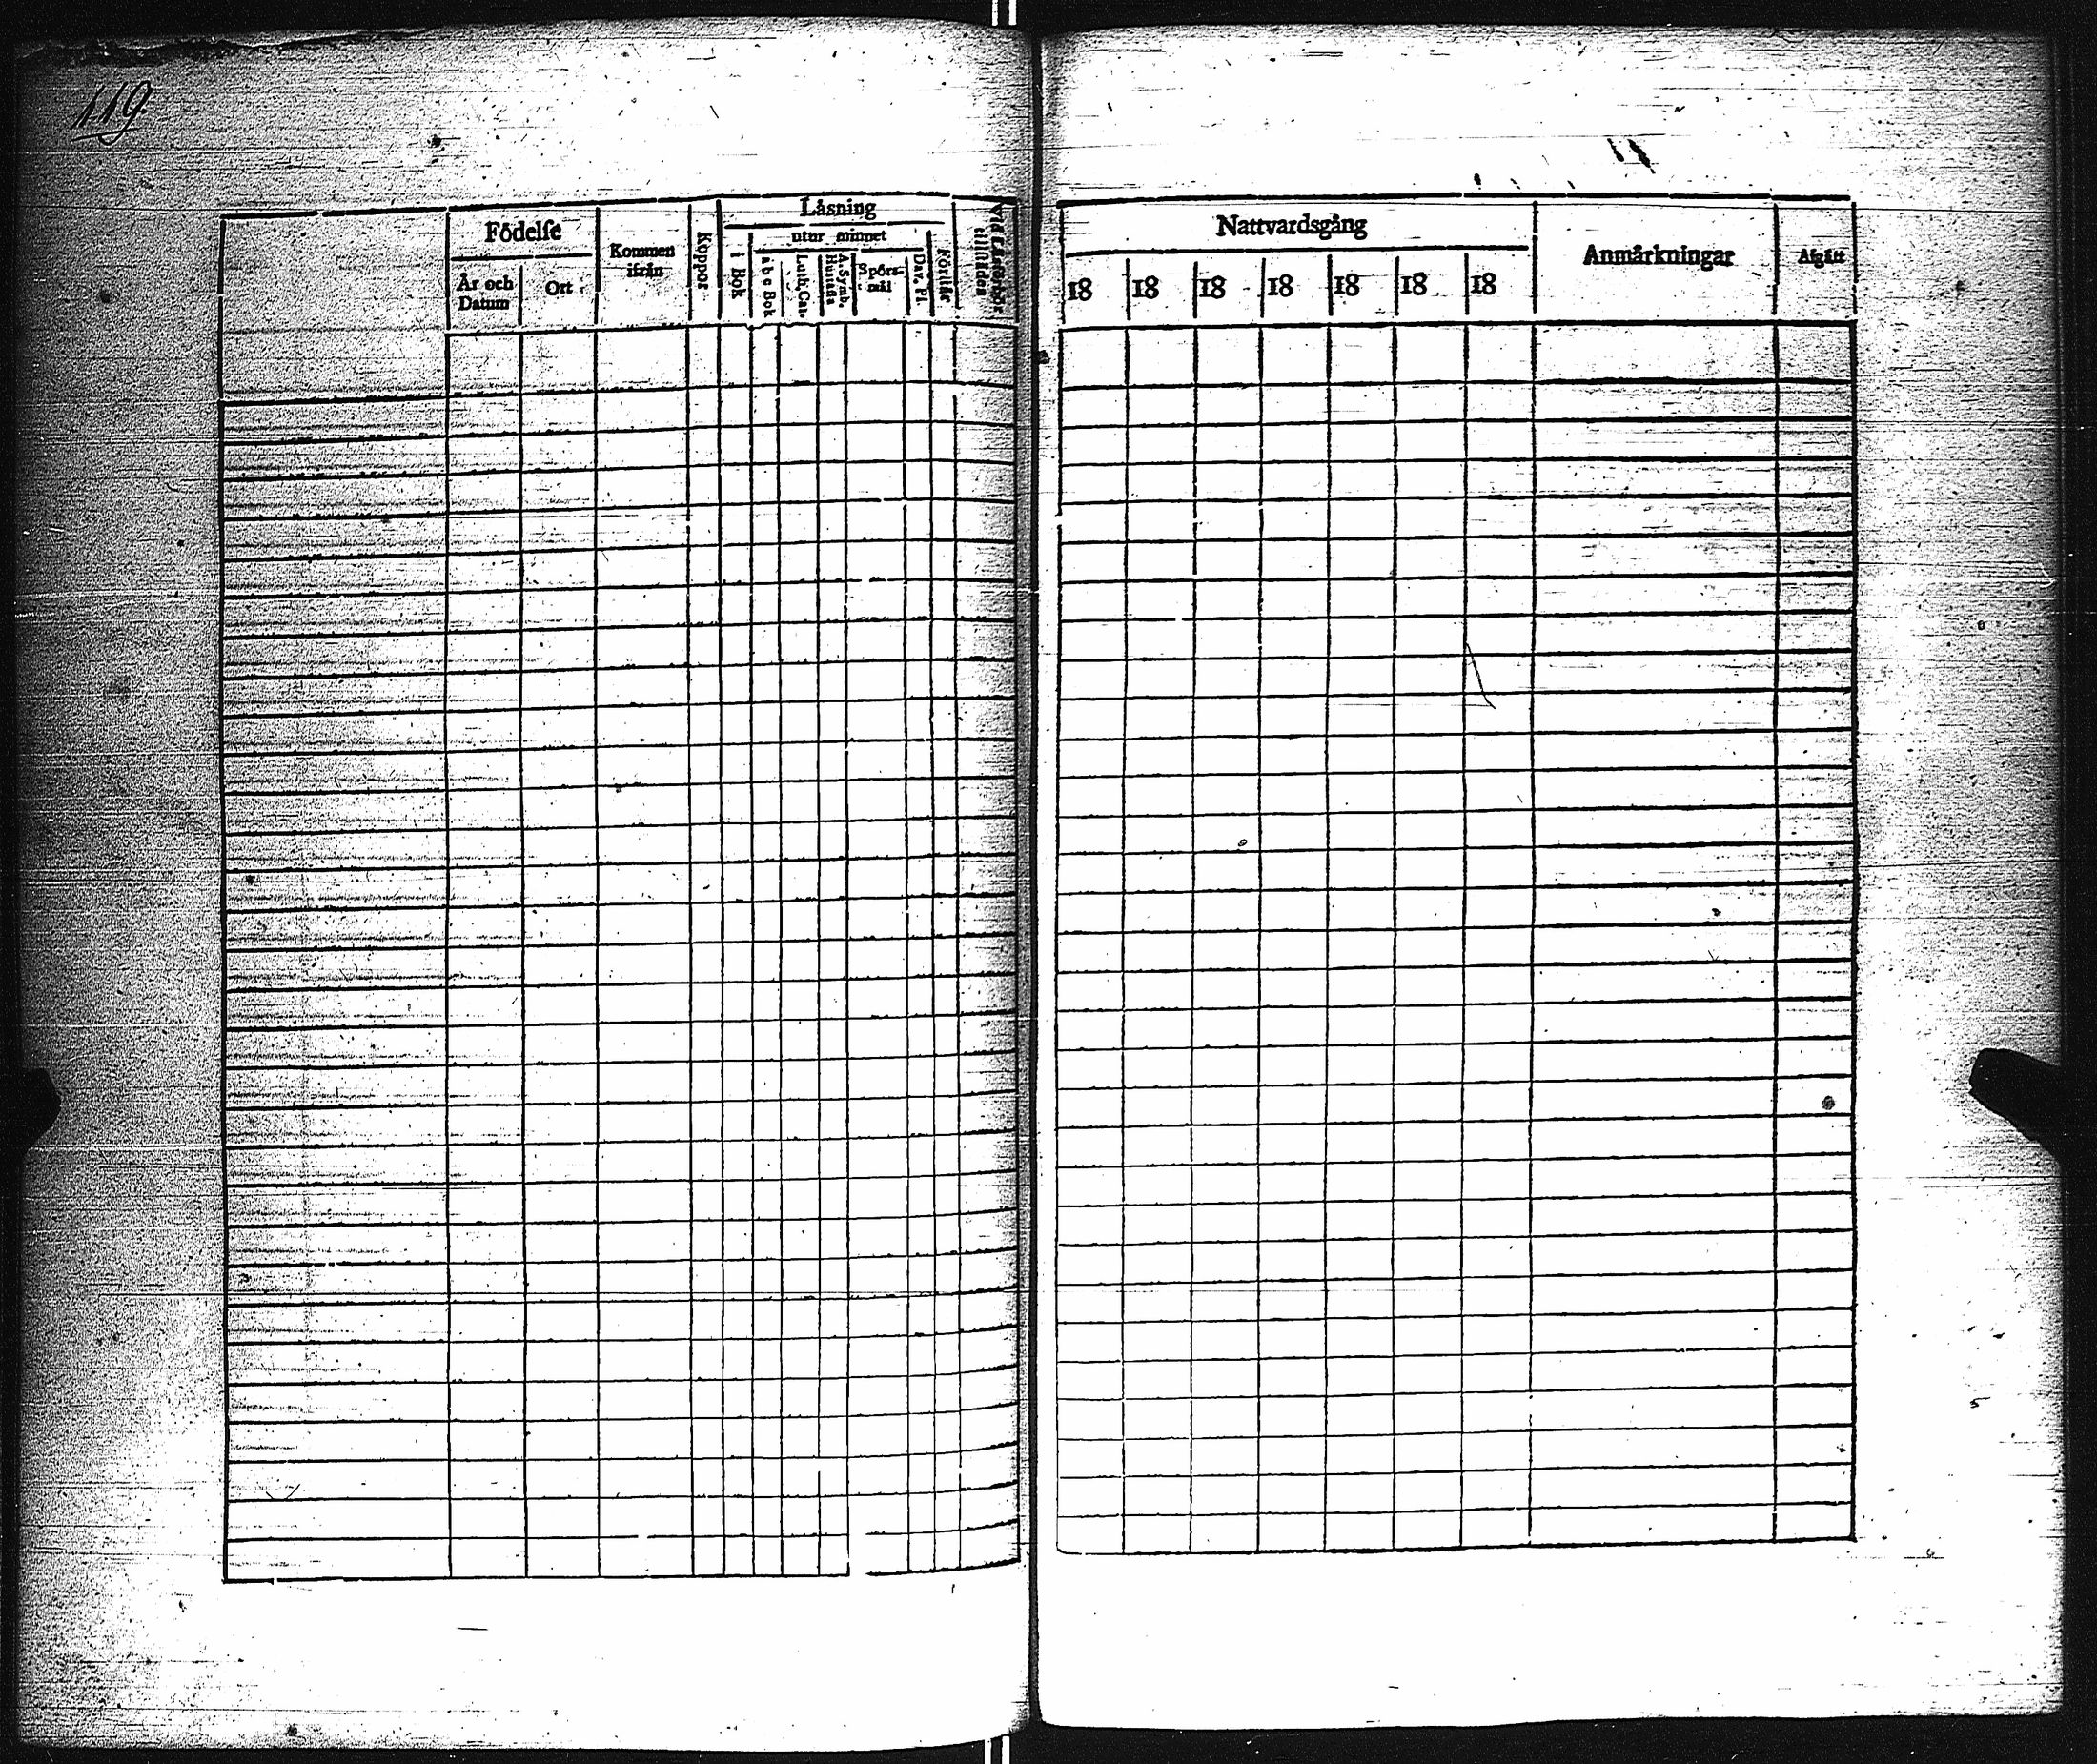 119
Födelse
År och Datum
Ort
Kommen ifrån
Koppor
Läsning
i Bok
utur minnet
a b c Bok
Luth. Cat.
A. Symb.
Hustafla
Spörsmål
Dav. Ps.
Förstår
Nattvardsgång
18 18 18 18 18 18 18
Anmärkningar
Afgått